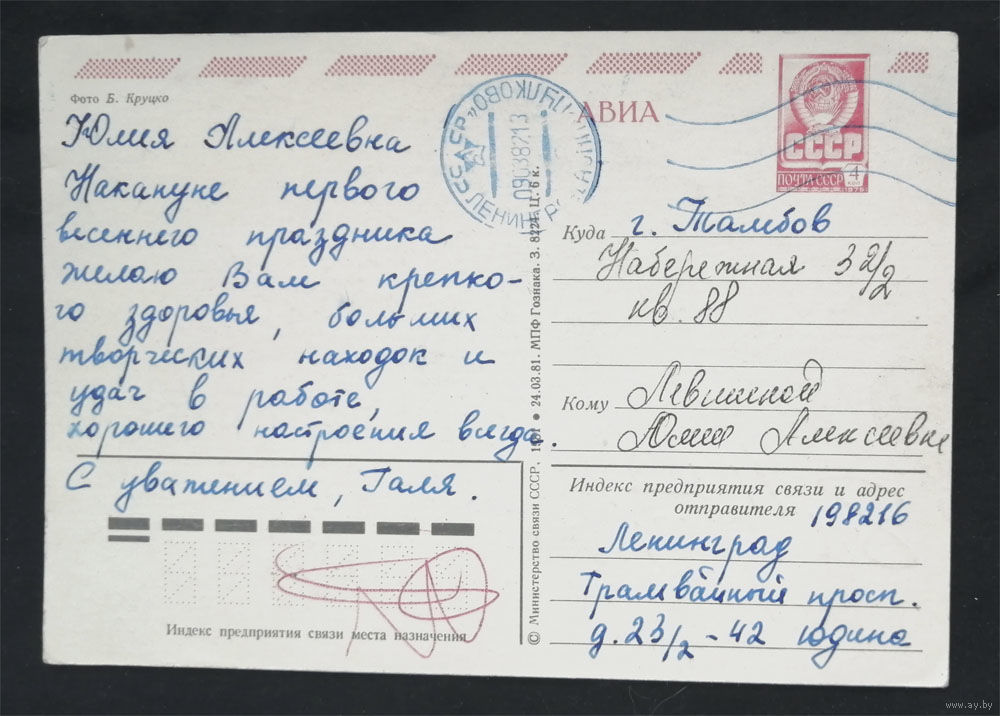 Фото Б. Круцко
Юлия Алексеевна
Накануне первого
весеннего праздника
желаю Вам крепко-
го здоровья, больших
творческих находок и
удач в работе,
хорошего настроения всегда.
С уважением, Галя.
Индекс предприятия связи места назначения
© Министерство связи СССР. 1981 • 24.03.81. МПФ Гознака. З. 8224. Ц. 6 к.
АВИА
СССР
ПОЧТА СССР 4
1978
ЛЕНИНГРАД
090382 13
Куда г. Тамбов
Набережная 32/2
кв. 88
Кому Левшиной
Юлии Алексеевне
Индекс предприятия связи и адрес
отправителя 198216
Ленинград
Трамвайный просп.
д. 23/2 - 42 Юдина
www.ay.by